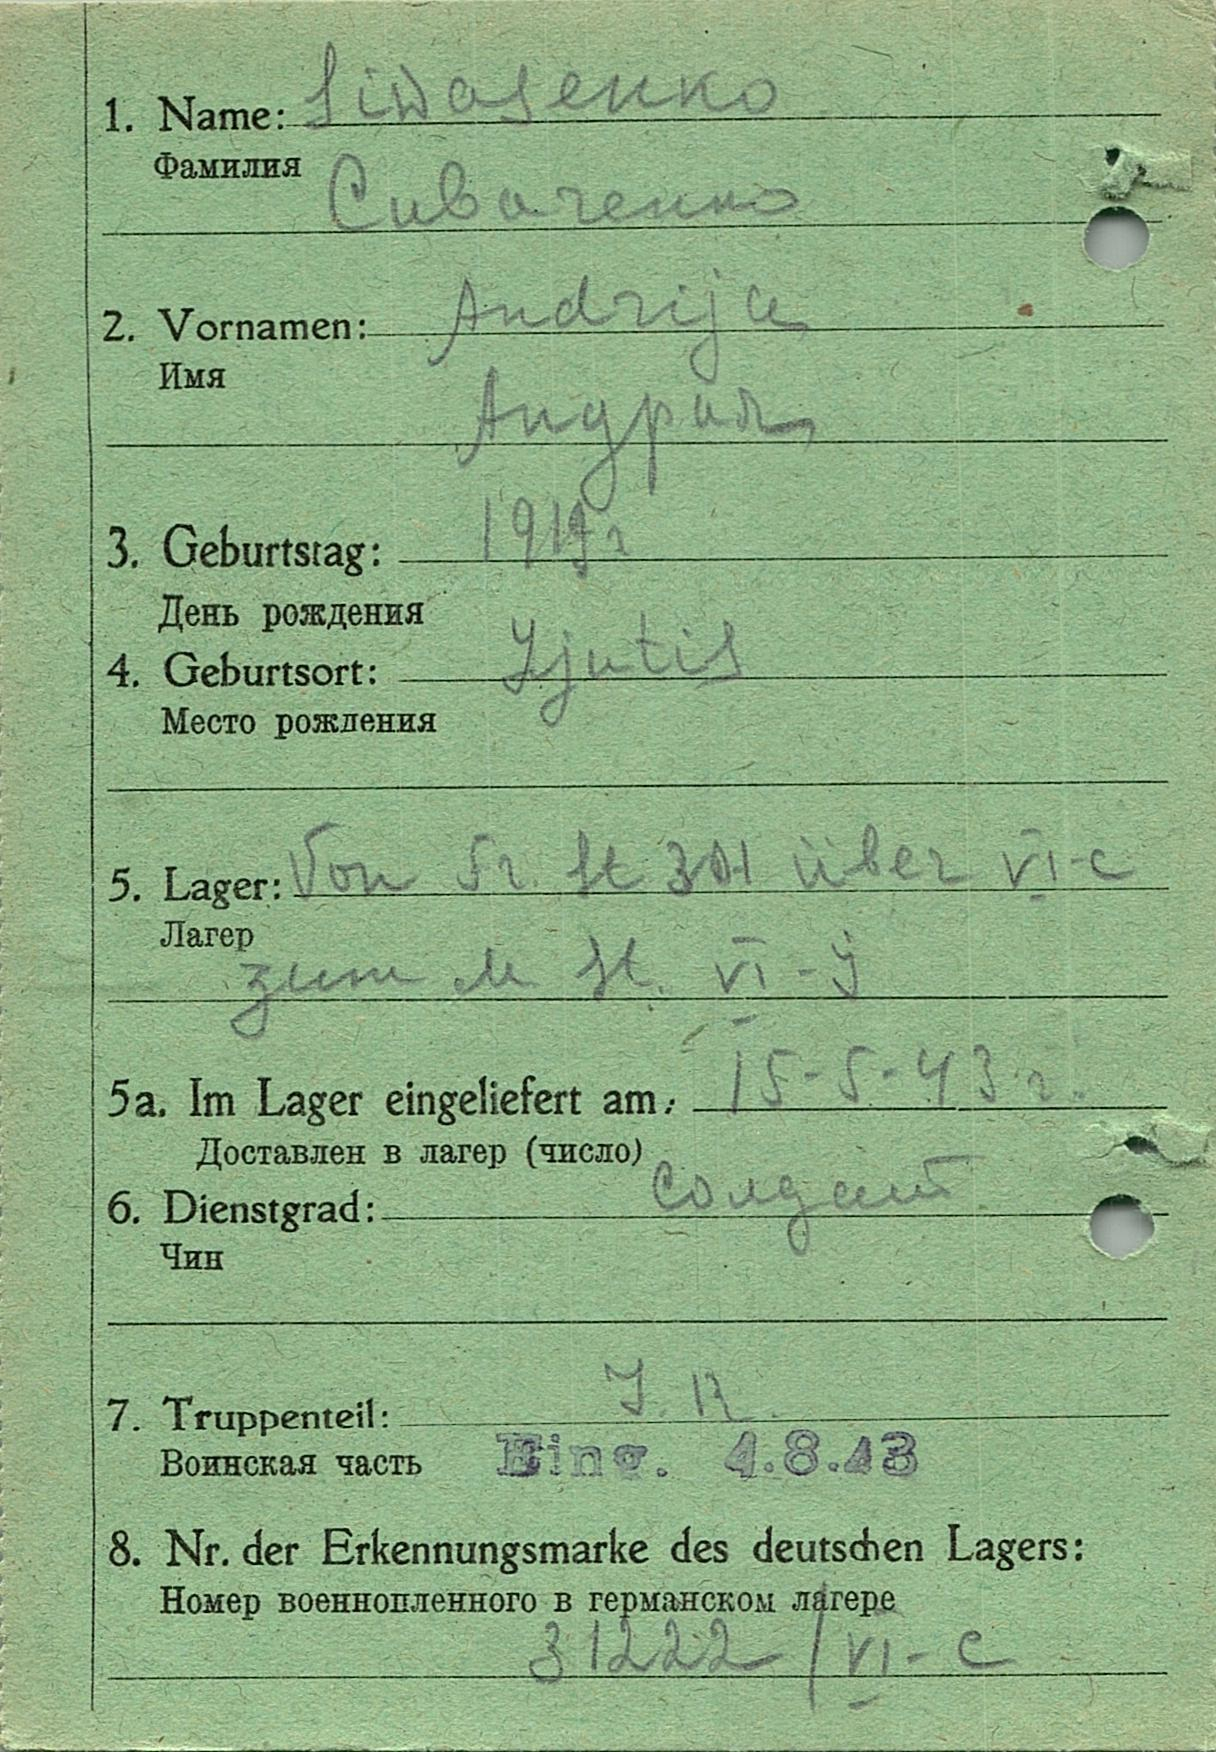 1. Name: Siwasenko
Фамилия
Сиваченко
2. Vornamen: Andrija
Имя
Андрия
3. Geburtstag: 1919 г
День рождения
4. Geburtsort:
Место рождения
5. Lager: Von Fr. St über VI-C
Лагер
zum M St. VI-J
5a. Im Lager eingeliefert am: 15-5-43 г.
Доставлен в лагер (число)
6. Dienstgrad: Солдат
Чин
7. Truppenteil: J. R.
Воинская часть Eing. 4.8.43
8. Nr. der Erkennungsmarke des deutschen Lagers:
Номер военнопленного в германском лагере
31222 / VI-C